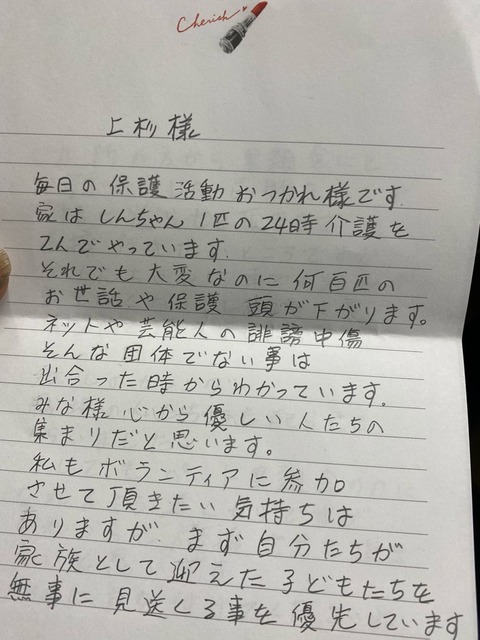 Cherish
上杉様
毎日の保護活動おつかれ様です.
家はしんちゃん1匹の24時介護を
2人でやっています.
それでも大変なのに何百匹の
お世話や保護 頭が下がります。
ネットや芸能人の誹謗中傷
そんな団体でない事は
出合った時からわかっています.
みな様心から優しい人たちの
集まりだと思います。
私もボランティアに参加
させて頂きたい気持ちは
ありますが、まず自分たちが
家族として迎えた子どもたちを
無事に見送くる事を優先しています